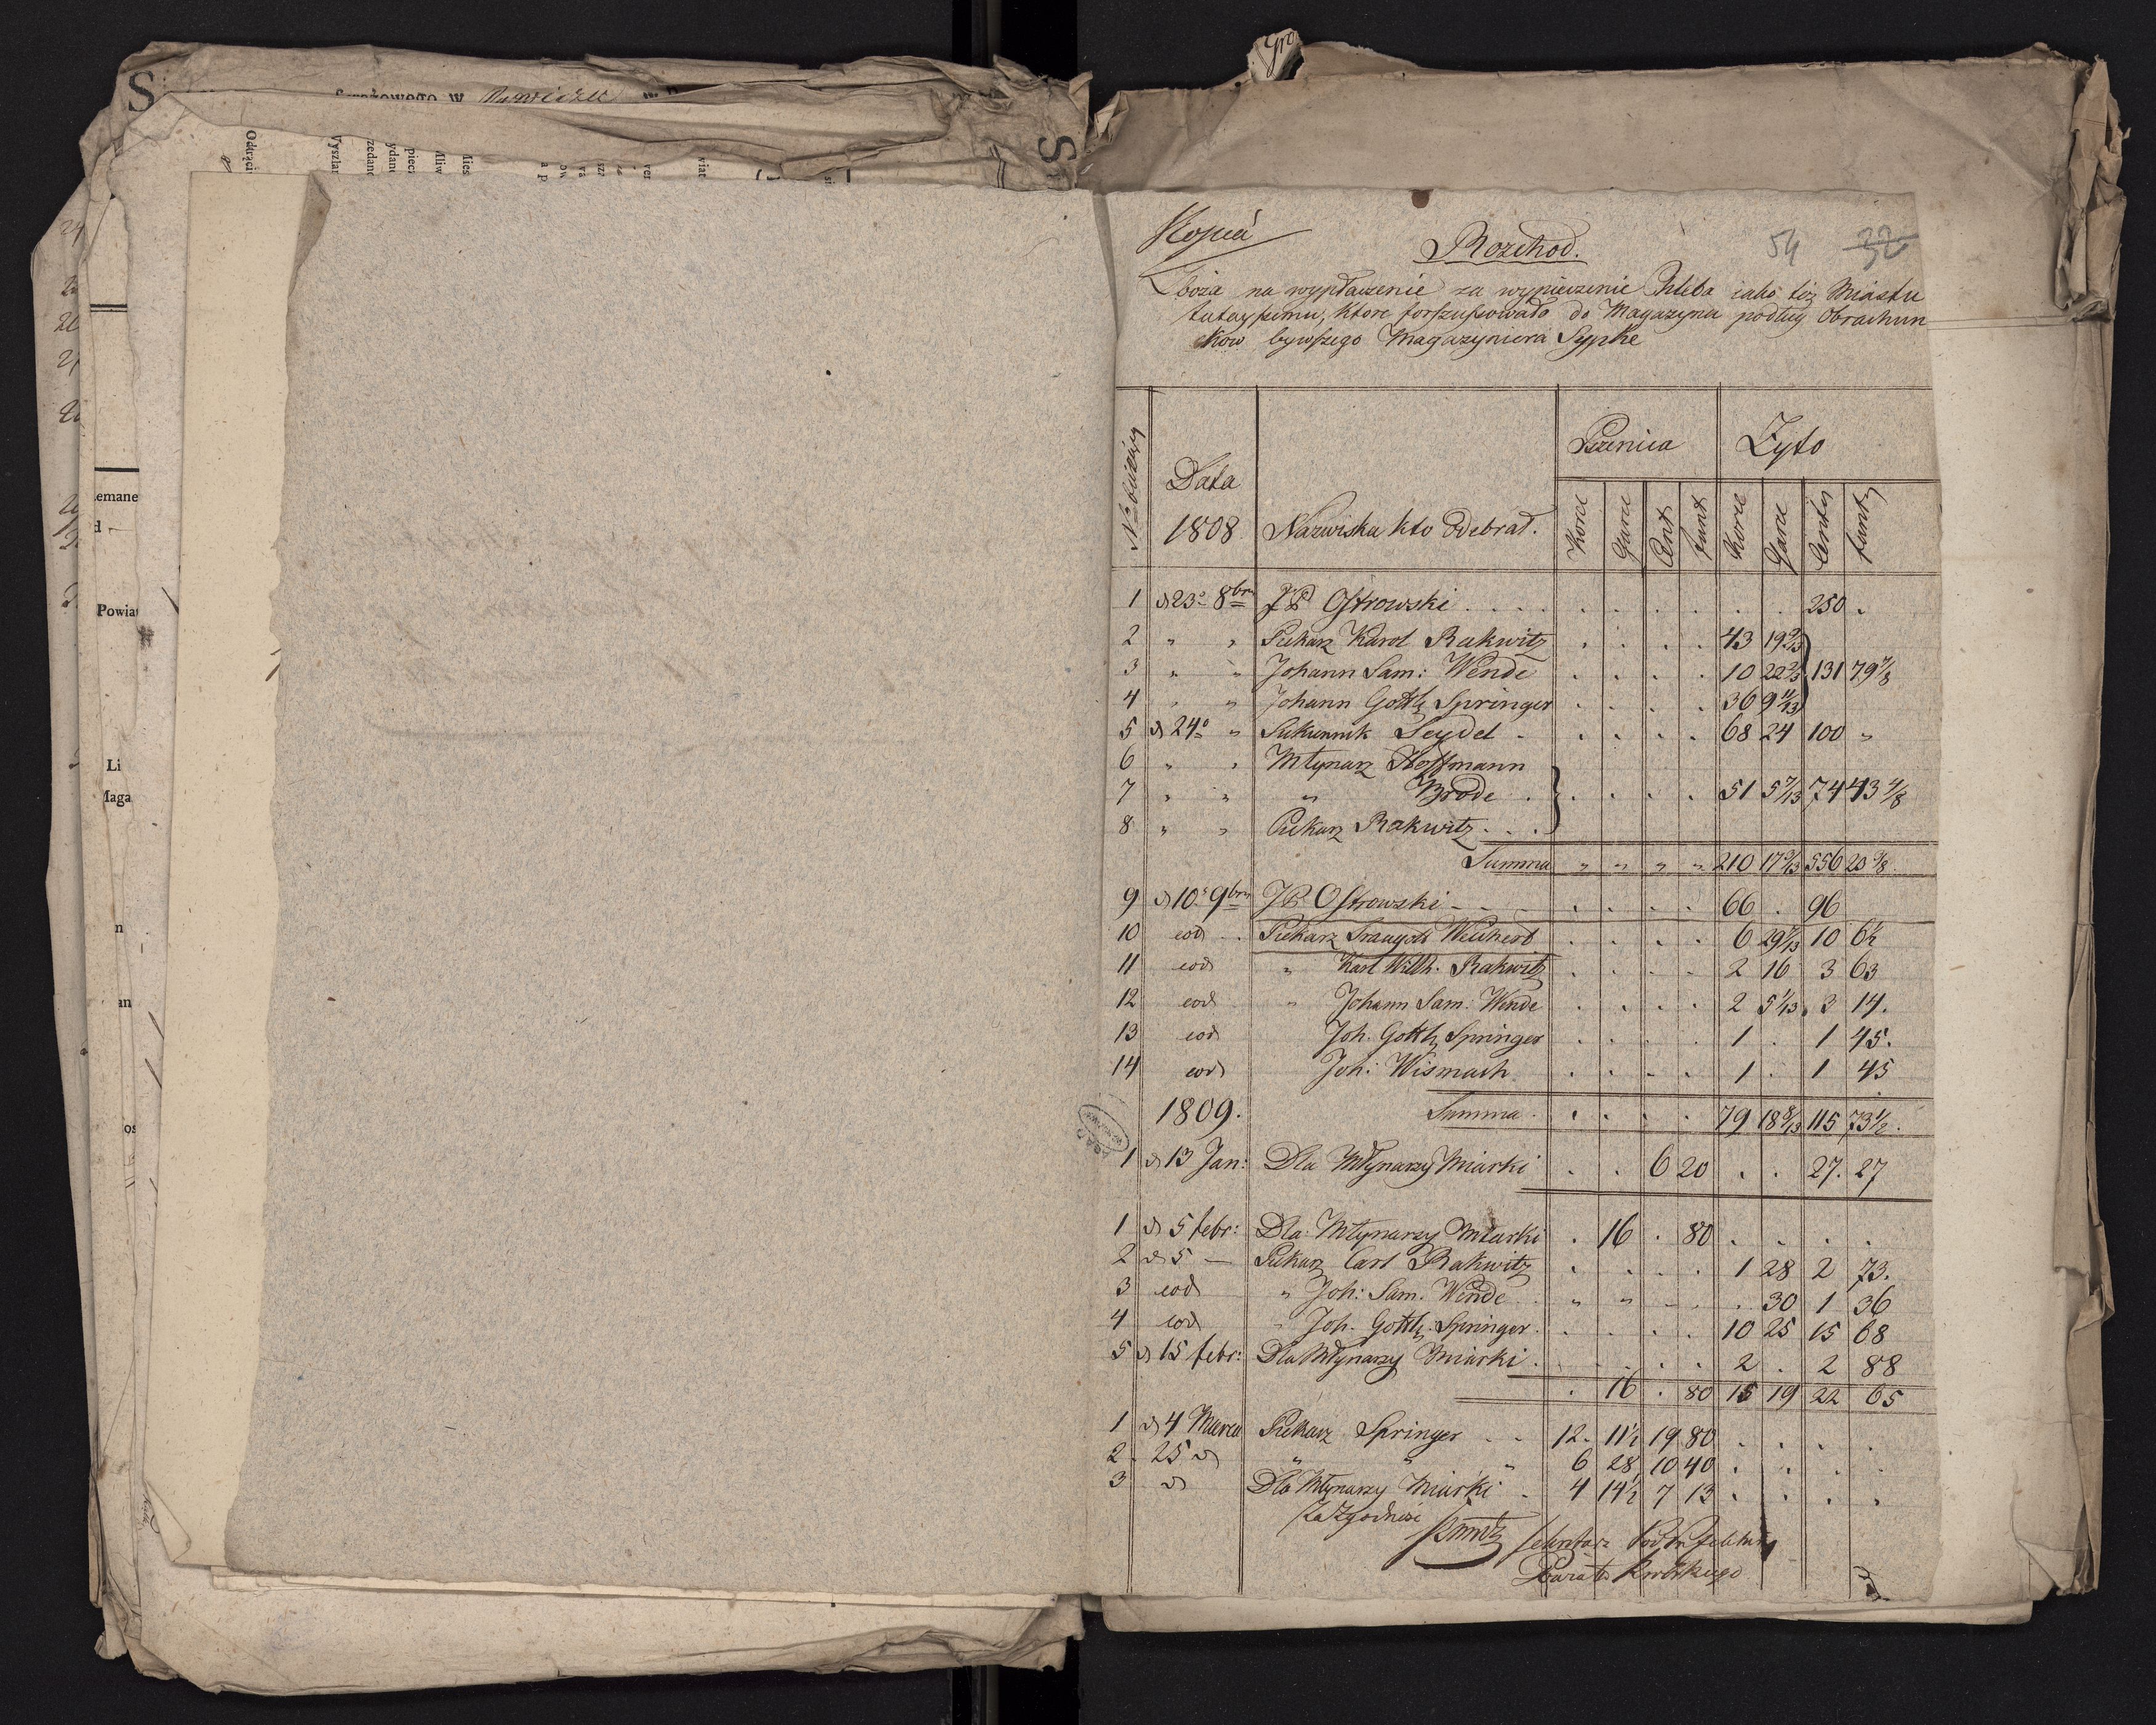 S
strażowego w Rawiczu
S
emane
Powiat
Li
Maga
Kopia
Rozchod.
54 32
Zboża na wypłacenie za wypieczenie Chleba iako też Miastu
tuteyszemu, ktore forszusowało do Magazynu podług Obrachun
kow bywszego Magazyniera Sypke
Pszenica | Zyto
Data
1808 | Nazwiska kto Odebrał. | Korce | Garce | Cent | funt | Korce | Garce | Centn | funty
1 | d 23° 8br | JP Ostrowski . . . . | . | . | . | . | . | . | 250 | .
2 | " " | Piekarz Karol Rakwitz | . | . | . | . | 43 | 19 9/13
3 | " " | Johann Sam: Wende | . | . | . | . | 10 | 22 2/3 | 131 | 79 7/8
4 | " " | Johann Gottl. Springer | . | . | . | . | 36 | 9 11/13
5 | d 24° " | Sukiennik Seydel | . | . | . | . | 68 | 24 | 100 | "
6 | " " | Młynarz Hoffmann
7 | " " | " Brode . | . | . | . | . | 51 | 5 7/13 | 74 | 43 4/8
8 | " " | Piekarz Rakwitz . . .
Summa | " | " | " | " | 210 | 17 3/13 | 556 | 23 3/8
9 | d 10° 9br | JP Ostrowski | . | . | . | . | 66 | . | 96
10 | eod . | Piekarz Traugott Weichert | . | . | . | . | 6 | 29 7/13 | 10 | 6 1/2
11 | eod | " Karl Wilh. Rakwitz | . | . | . | . | 2 | 16 | 3 | 63
12 | eod | " Johann Sam: Wende | . | . | . | . | 2 | 5 1/13 | 3 | 14.
13 | eod | Joh. Gottl. Springer | . | . | . | . | 1 | . | 1 | 45.
14 | eod | Joh: Wismach | . | . | . | . | 1 | . | 1 | 45
1809. | Summa . | . | . | . | . | 79 | 18 8/13 | 115 | 73 1/2.
1 | d 13 Jan: | Dla Młynarzy Miarki | . | . | 6 | 20 | . | . | 27. | 27
1 | d 5 febr: | Dla Młynarzy Miarki | . | 16 | . | 80 | . | . | . | .
2 | d 5 — | Piekarz Carl Rakwitz | . | . | . | . | 1 | 28 | 2 | 73.
3 | eod | " Joh: Sam. Wende | " | " | . | . | . | 30 | 1 | 36
4 | eod | " Joh. Gottl. Springer . | . | . | . | . | 10 | 25 | 15 | 68
5 | d 15 febr: | Dla Młynarzy Miarki . | . | . | . | . | 2 | . | 2 | 88
. | 16 | . | 80 | 15 | 19 | 22 | 65
1 | d 4 Marca | Piekarz Springer | 12. | 11 1/2 | 19 | 80 | . | . | . | .
2 | 25 d | " " " | 6 | 28 | 10 | 40 | . | . | . | .
3 | d | Dla Młynarzy Miarki . | 4 | 14 1/2 | 7 | 13 | . | . | . | .
Za Zgodność
Sekretarz Podprefektury
Powiatu